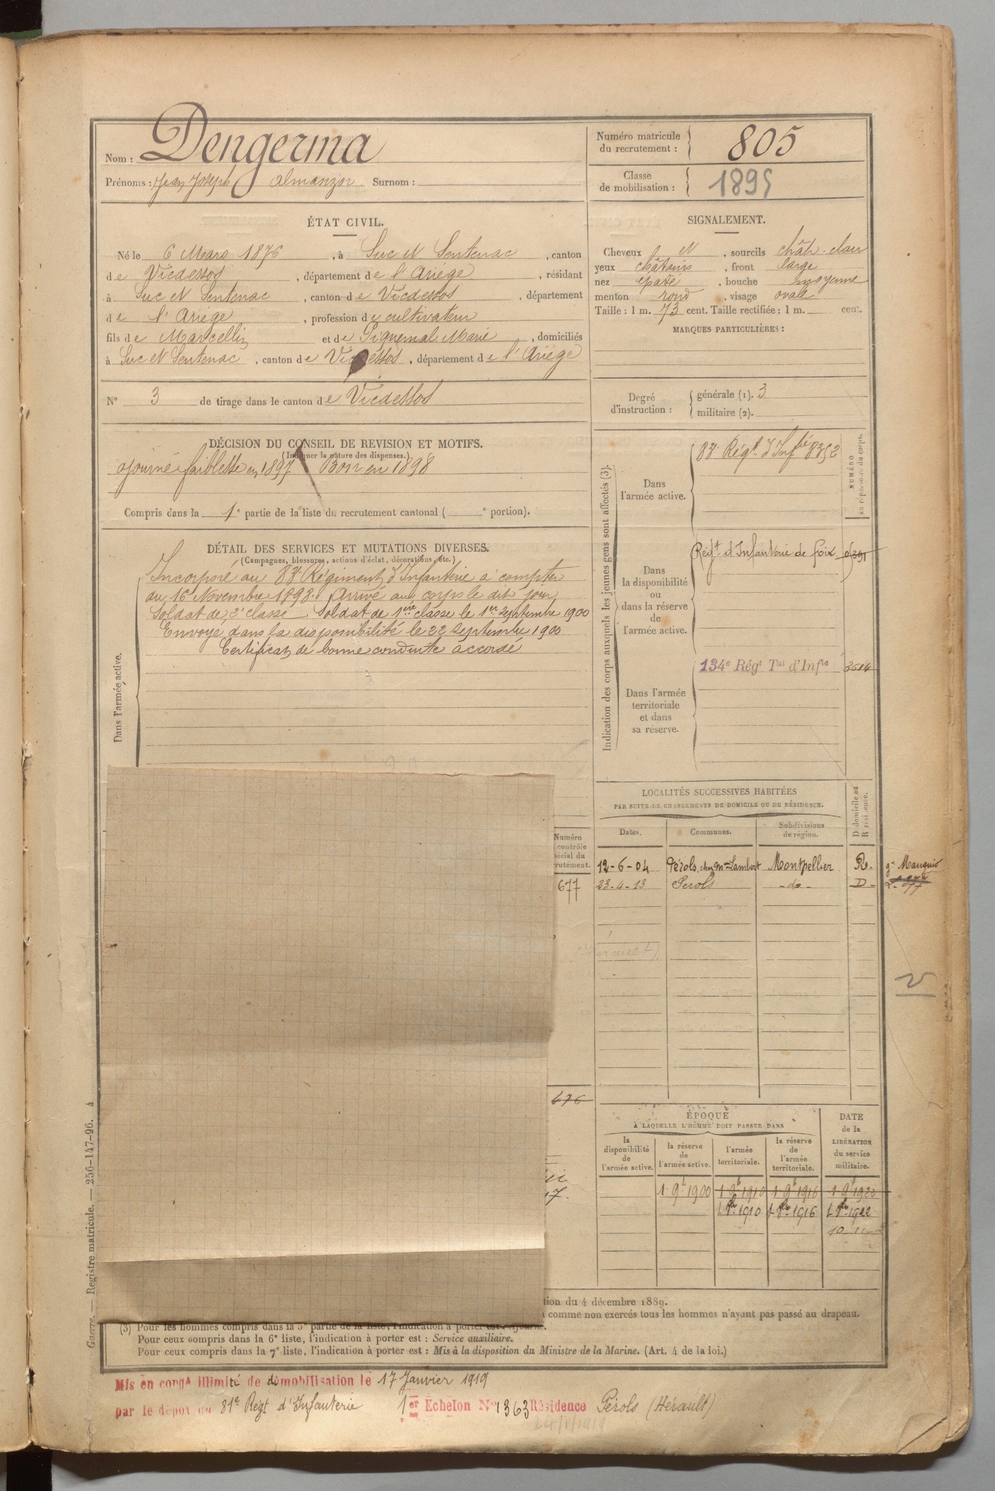 Nom : Dengerma
Prénoms : Jean Joseph Almanzor Surnom :
Numéro matricule du recrutement : 805
Classe de mobilisation : 1895
ÉTAT CIVIL.
Né le 6 Mars 1876, à Suc et Sentenac, canton
de Vicdessos, département de l'Ariège, résidant
à Suc et Sentenac, canton de Vicdessos, département
de l'Ariège, profession d cultivateur
fils de Marcellin et de Piquemal Marie, domiciliés
à Suc et Sentenac, canton de Vicdessos, département de l'Ariège
N° 3 de tirage dans le canton de Vicdessos
SIGNALEMENT.
Cheveux et, sourcils chât. clair
yeux châtains, front large
nez épaté, bouche moyenne
menton rond, visage ovale
Taille : 1 m. 73 cent. Taille rectifiée : 1 m. cent.
MARQUES PARTICULIÈRES :
Degré d'instruction : générale (1). 3
militaire (2).
DÉCISION DU CONSEIL DE REVISION ET MOTIFS.
(Indiquer la nature des dispenses.)
ajourné faiblesse en 1897 Bon en 1898
Compris dans la 1e partie de la liste du recrutement cantonal ( e portion).
DÉTAIL DES SERVICES ET MUTATIONS DIVERSES.
(Campagnes, blessures, actions d'éclat, décorations, etc.)
Dans l'armée active.
Incorporé au 83e Régiment d'Infanterie à compter
du 16 Novembre 1898. Arrivé au corps le dit jour
Soldat de 2e classe. Soldat de 1ère classe le 1er Septembre 1900
Envoyé dans la disponibilité le 22 Septembre 1900
Certificat de bonne conduite accordé
Indication des corps auxquels les jeunes gens sont affectés (3).
NUMÉRO
Dans l'armée active.
83e Régt d'Infie 8352
Dans la disponibilité ou dans la réserve de l'armée active.
Régt d'Infanterie de foix
Dans l'armée territoriale et dans sa réserve.
134e Régt Tal d'Infie
LOCALITÉS SUCCESSIVES HABITÉES
PAR SUITE DE CHANGEMENTS DE DOMICILE OU DE RÉSIDENCE.
Dates. Communes. Subdivisions de région. D domicile ou R résidence.
12-6-04 Pérols chez Mme Lambert Montpellier R. gie Mauguio
23-4-13 Pérols -do- D
Numéro
677
ÉPOQUE
À LAQUELLE L'HOMME DOIT PASSER DANS
la disponibilité de l'armée active.
la réserve de l'armée active.
l'armée territoriale.
la réserve de l'armée territoriale.
DATE de la LIBÉRATION du service militaire.
1 9e 1900 1 9e 1910 1 9e 1916 1 9e 1922
1 8bre 1910 1 8bre 1916 1 8bre 1922
tion du 4 décembre 1889.
comme non exercés tous les hommes n'ayant pas passé au drapeau.
(3) Pour les hommes compris dans la 5e partie de la liste, l'indication à porter est
Pour ceux compris dans la 6e liste, l'indication à porter est : Service auxiliaire.
Pour ceux compris dans la 7e liste, l'indication à porter est : Mis à la disposition du Ministre de la Marine. (Art. 4 de la loi.)
Guerre. — Registre matricule. — 256-147-96.
Mis en congé illimité de démobilisation le 17 Janvier 1919
par le dépôt du 81e Régt d'Infanterie 1er Echelon N° 1363 Résidence Pérols (Hérault)